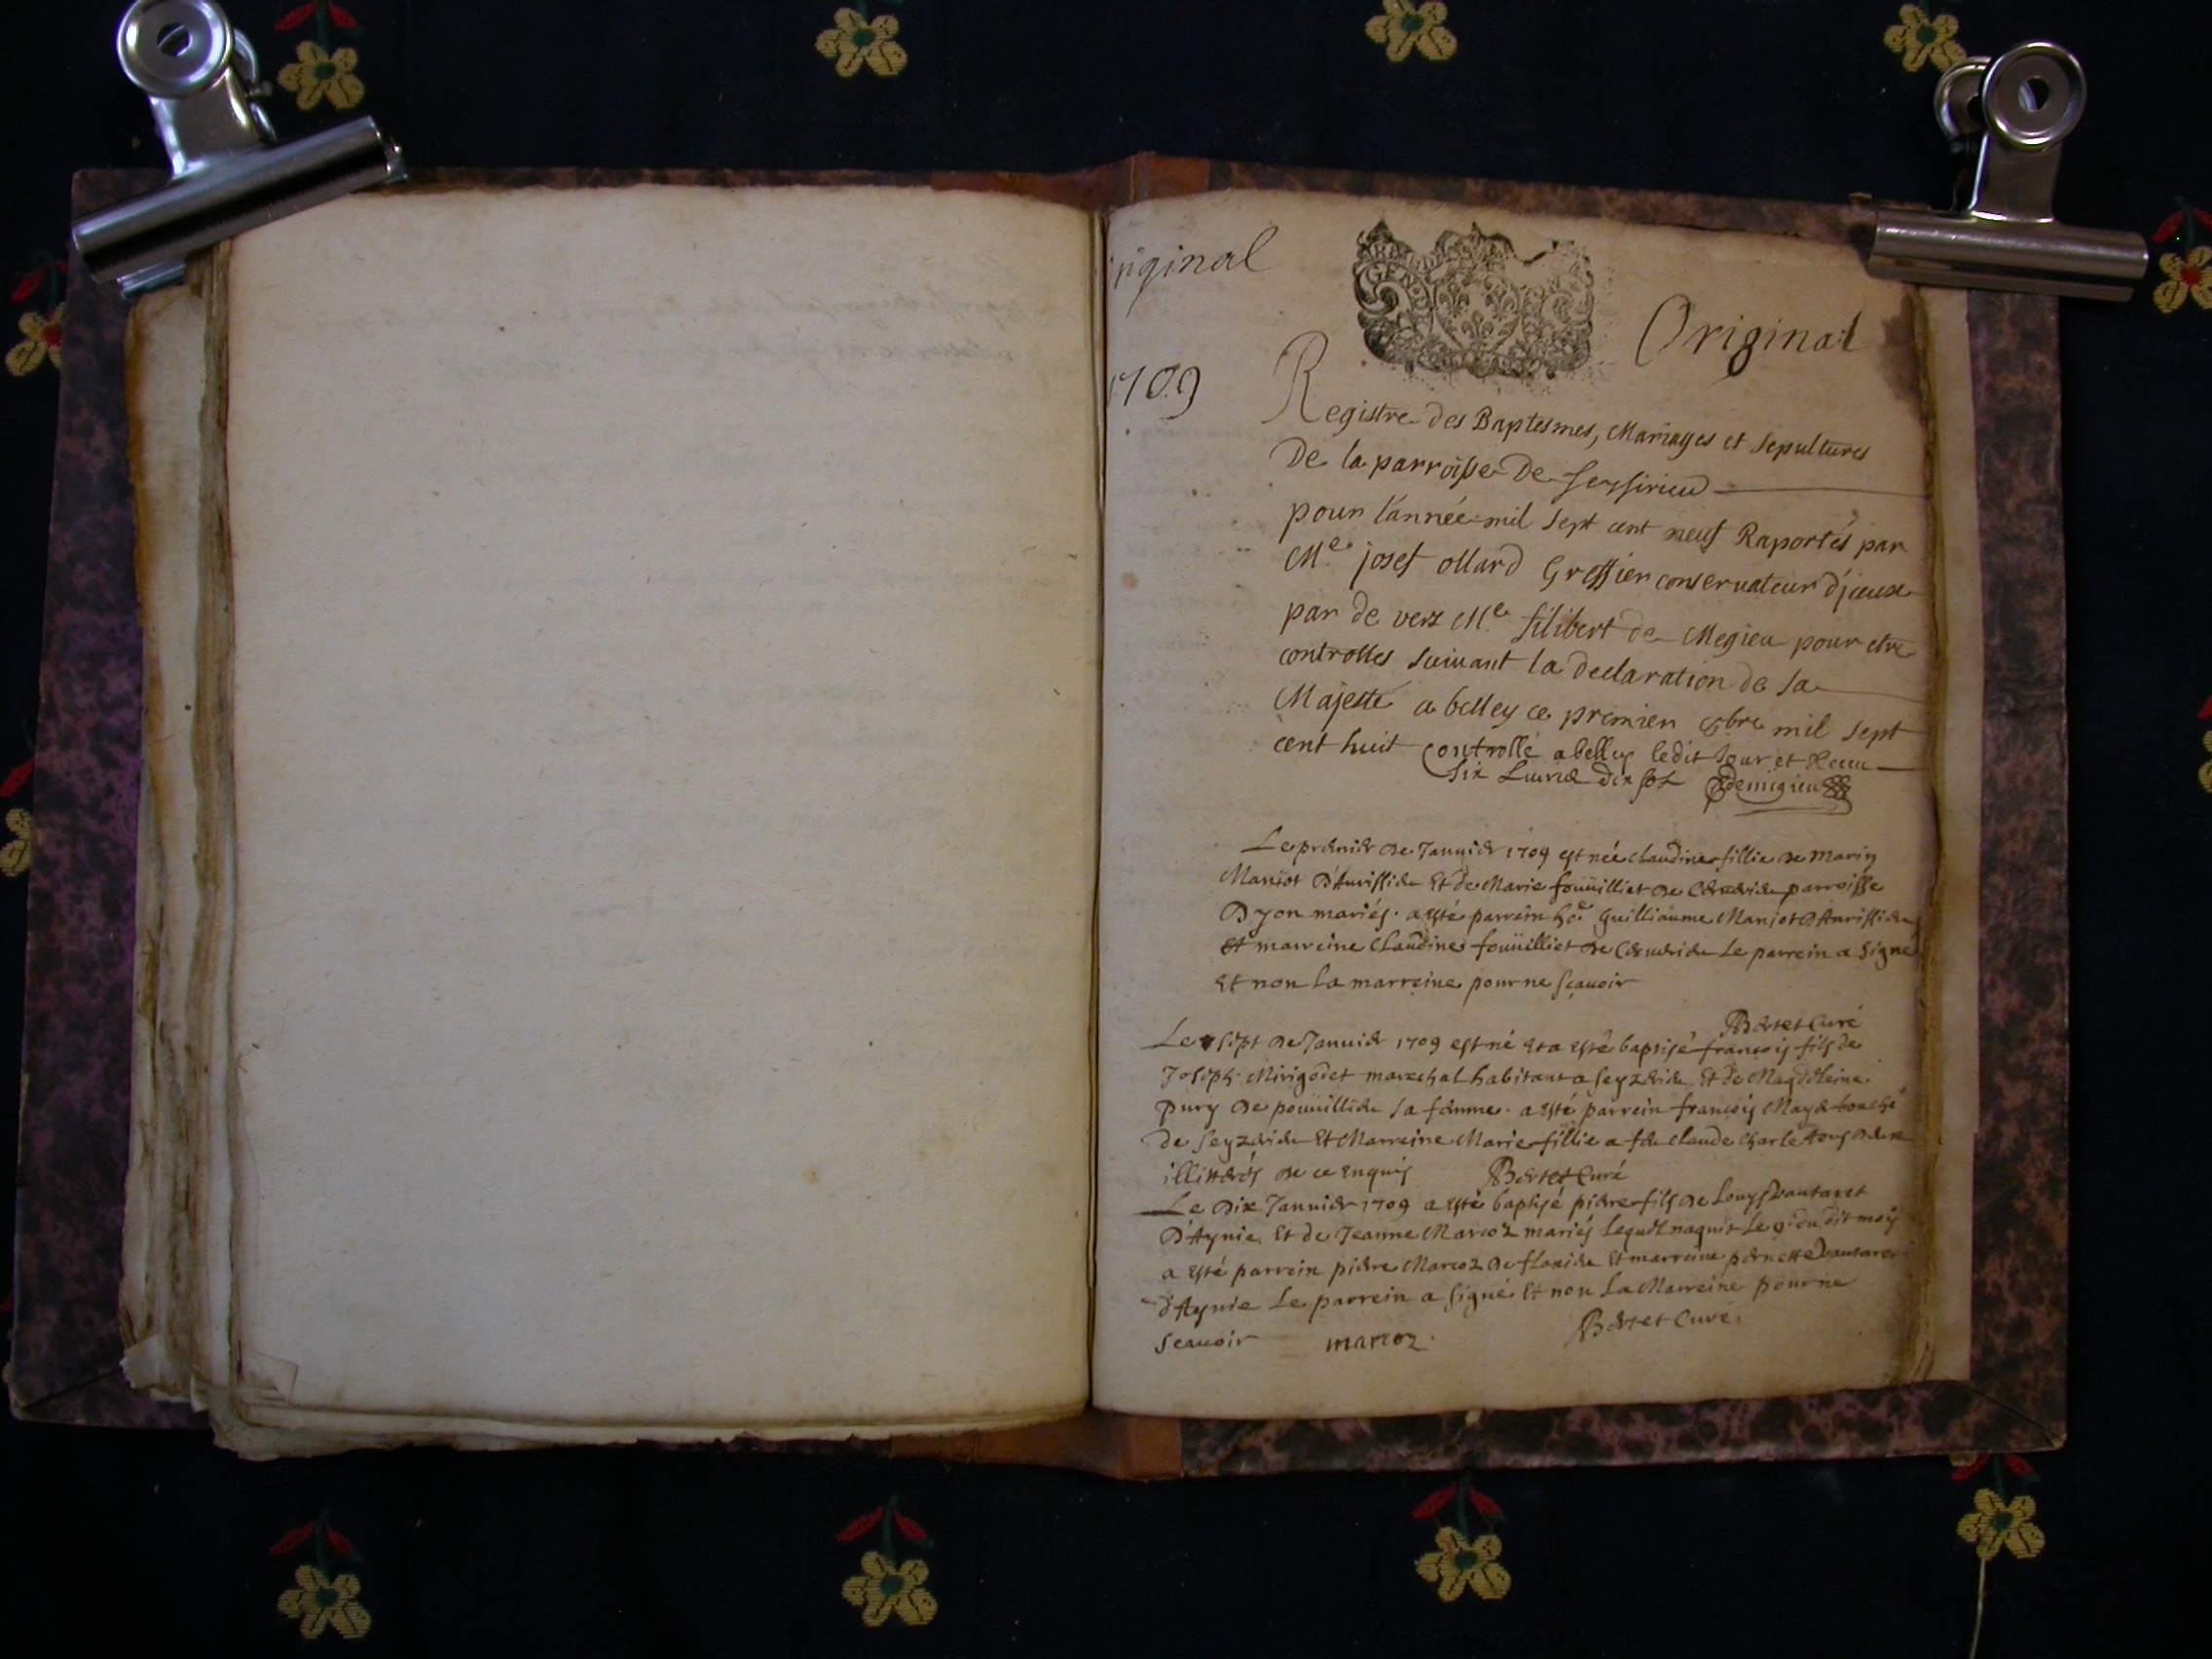 original
Original
1709
Registre des Baptesmes, Mariages et Sepultures
De la parroisse De Seyssirieu
pour l'année mil sept cent neuf Raportés par
Me. josef ollard Greffier conservateur d'jceux
par de vers Me. filibert de Megieu pour etre
controlles suivant la declaration de sa
Majesté a belley ce premier 8bre mil sept
cent huit Controllé a belley ledit Jour et Receu
Six Livres dix sols Demigieu
Le premier de Januier 1709 est née claudine fillie de marin
Maniot D'Aurissieu Et de Marie foüilliet de parroisse
D'yon mariés. a esté parrein ho.e Guilliaume Maniot D'Aurissieu
et marreine Claudine foüilliet de Le parrein a signé
Et non la marreine pour ne sçauoir
Bertet Curé
Le sept de Januier 1709 est né et a esté baptisé francois fils de
Joseph Mirigodet mareschal habitant a Seyzerieu Et de Magdeleine
pury de poüillieu sa femme. a esté parrein francois
de Seyzerieu Et Marreine Marie fillie a feu claude Charle tous deux
illitterés de ce Enquis Bertet Curé
Le Dix Januier 1709 a Esté baptisé pierre fils de Louys Dautaret
D'Aynie Et de Jeanne Marcoz mariés lequel naquit le 9. du dit mois
a Esté parrein pierre Marcoz de flaxieu Et marreine pernette Dautaret
d'Aynie Le parrein a signé Et non La Marreine pour ne
scauoir marcoz. Bertet Curé.